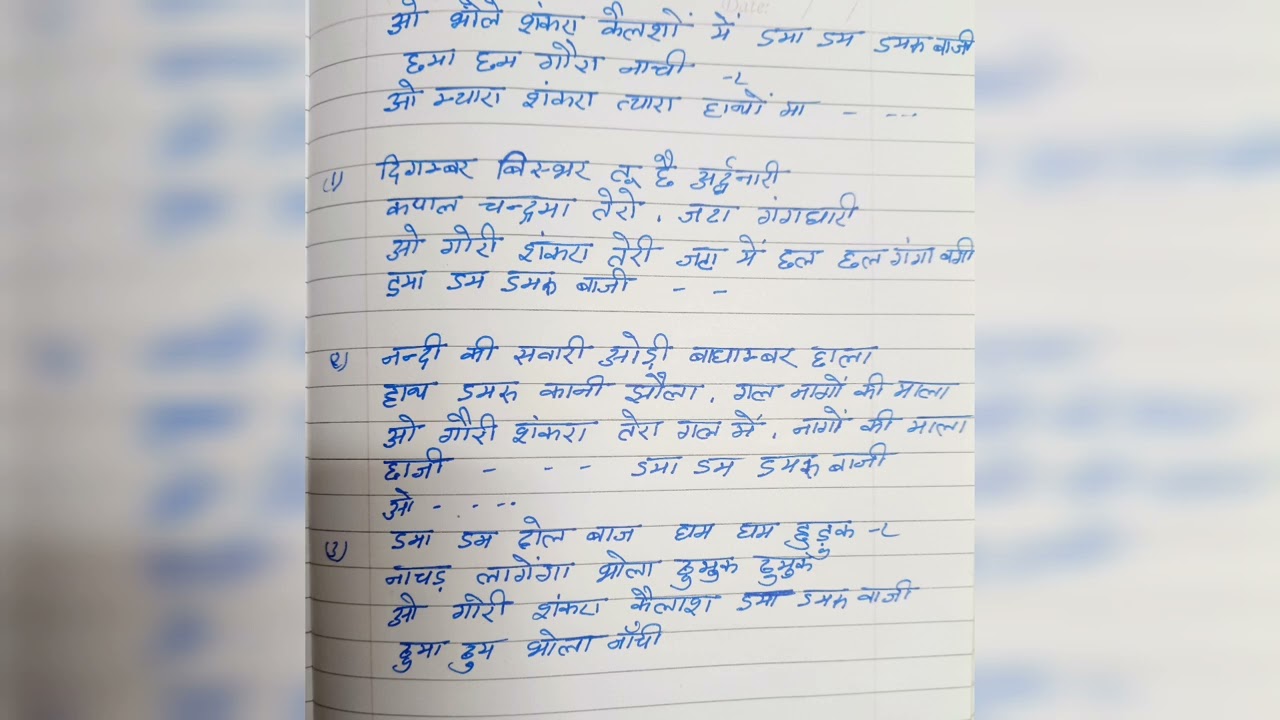 Date:
ओ भोले शंकरा कैलाशों में डमा डम डमरू बाजी
छमा छम गौरा नाची -२
ओ म्यारा शंकरा त्यारा हाथों मा - ---
(1) दिगम्बर बिस्म्भर तू है अर्द्धनारी
कपाल चन्द्रमा तेरो, जटा गंगधारी
ओ गोरी शंकरा तेरी जटा में छल छल गंगा बगी
डुमा डम डमरू बाजी - -
२) नन्दी की सवारी ओड़ी बाघाम्बर छाला
हाथ डमरू कानी झोला, गल नागों की माला
ओ गौरी शंकरा तेरा गल में, नागों की माला
छाजी - - - डमा डम डमरू बाजी
ओ - - - --
(3) डमा डम ढोल बाज घम घम हुड़ुक -२
नाचड़ लागेंगा भोला ढुमुक ढुमुक
ओ गोरी शंकरा कैलाश डमा डमरू बाजी
ढुमा ढुम भोला नाँची